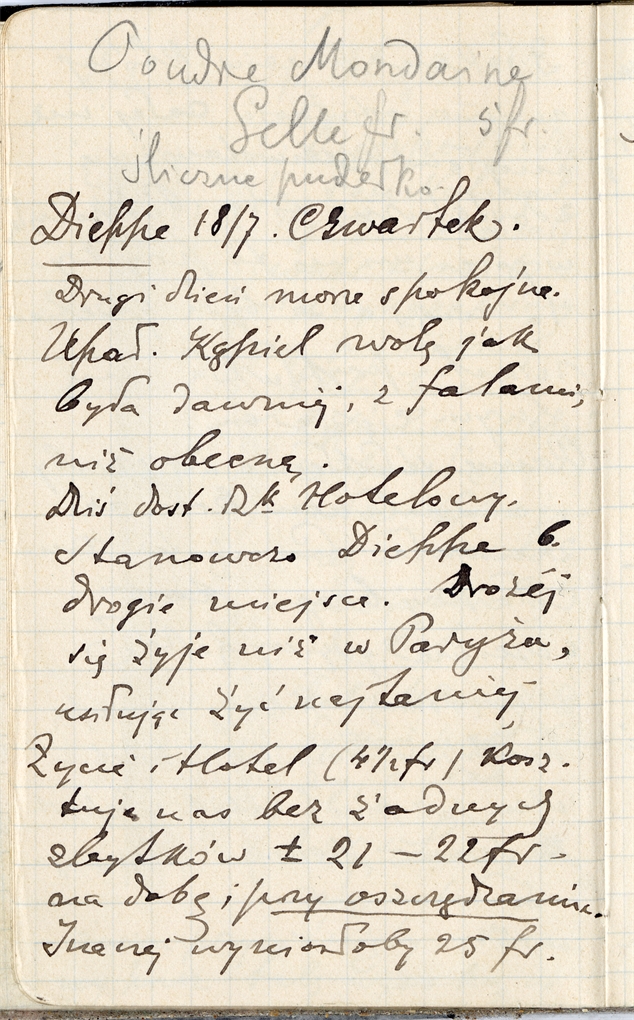 Poudre Mondaine
Gelle fr. 5 fr.
śliczne pudełko.
Dieppe 18/7. Czwartek.
Drugi dzień morze spokojne.
Upał. Kąpiel wolę jak
była dawniej, z falami,
niż obecną.
Dziś dost. Hotelowy.
Stanowczo Dieppe b.
drogie miejsce. Drożej
się żyje niż w Paryżu,
usiłując żyć najtaniej
Życie i Hotel (4 1/2 fr) kosz.
tuje nas bez żadnych
zbytków ± 21 – 22 fr.
na dobę i przy oszczędzaniu.
Inaczej wyniosłoby 25 fr.